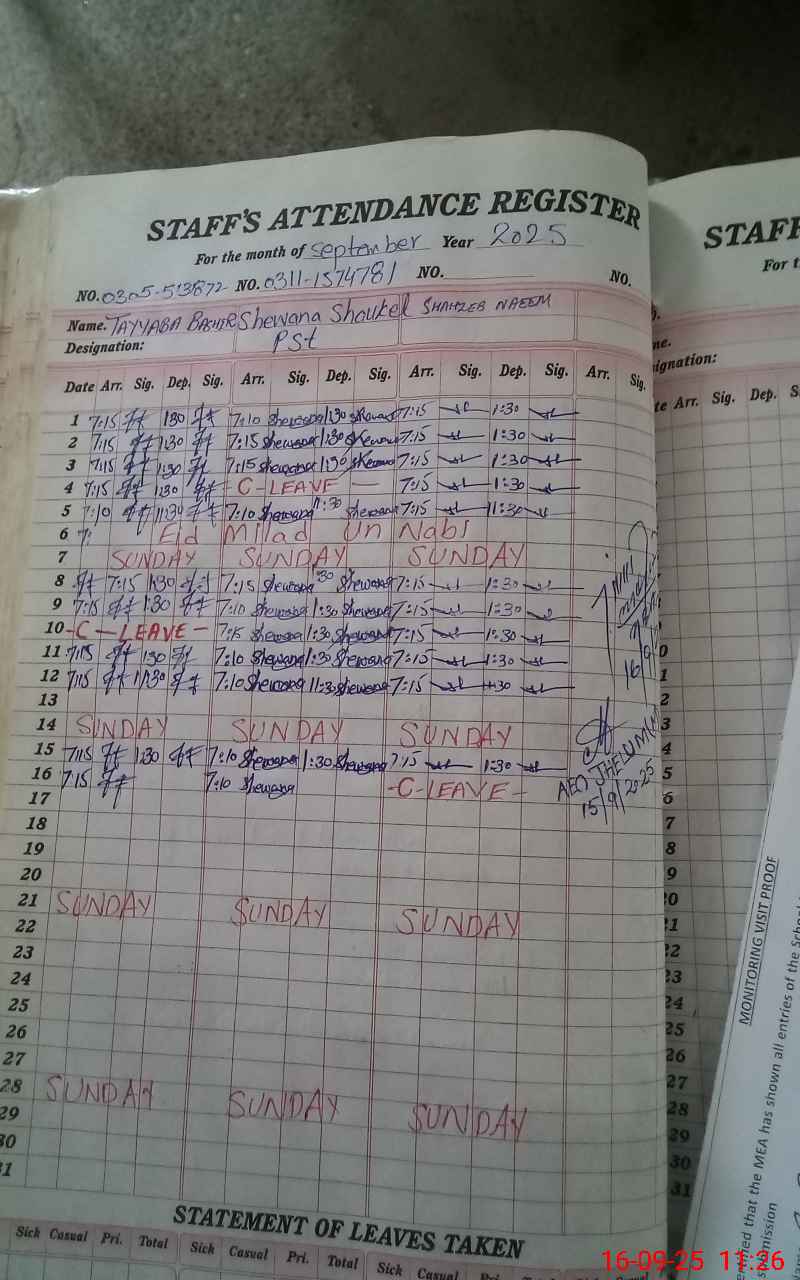 STAFF'S ATTENDANCE REGISTER
For the month of September Year 2025
NO. 0305-513872 NO. 0311-1574781 NO. NO.
Name. TAYYABA BASHIR Shewana Shaukel SHAHZEB NAEEM
Designation: PSt
Date Arr. Sig. Dep. Sig. Arr. Sig. Dep. Sig. Arr. Sig. Dep. Sig. Arr. Sig.
1 7:15 1:30 7:10 Shewana 1:30 Shewana 7:15 1:30
2 7:15 1:30 7:15 Shewana 1:30 Shewana 7:15 1:30
3 7:15 1:30 7:15 Shewana 1:30 Shewana 7:15 1:30
4 7:15 1:30 - C-LEAVE - 7:15 1:30
5 7:10 11:30 7:10 Shewana 11:30 Shewana 7:15 11:30
6 7: Eid Milad un Nabi
7 SUNDAY SUNDAY SUNDAY
8 7:15 1:30 7:15 Shewana :30 Shewana 7:15 1:30
9 7:15 1:30 7:10 Shewana 1:30 Shewana 7:15 1:30
10 -C-LEAVE- 7:15 Shewana 1:30 Shewana 7:15 1:30
11 7:15 1:30 7:10 Shewana 1:30 Shewana 7:15 1:30
12 7:15 11:30 7:10 Shewana 11:30 Shewana 7:15 11:30
13
14 SUNDAY SUNDAY SUNDAY
15 7:15 1:30 7:10 Shewana 1:30 Shewana 7:15 1:30
16 7:15 7:10 Shewana -C-LEAVE-
17
18
19
20
21 SUNDAY SUNDAY SUNDAY
22
23
24
25
26
27
28 SUNDAY SUNDAY SUNDAY
29
30
31
AEO JHELUM
15/9/2025
16/9
STATEMENT OF LEAVES TAKEN
Sick Casual Pri. Total Sick Casual Pri. Total Sick Casual Pri.
STAFF
For t
ignation:
te Arr. Sig. Dep. S
0
1
2
3
4
5
6
7
8
9
20
21
22
23
24
25
26
27
28
29
30
31
MONITORING VISIT PROOF
that the MEA has shown all entries of the
16-09-25 11:26